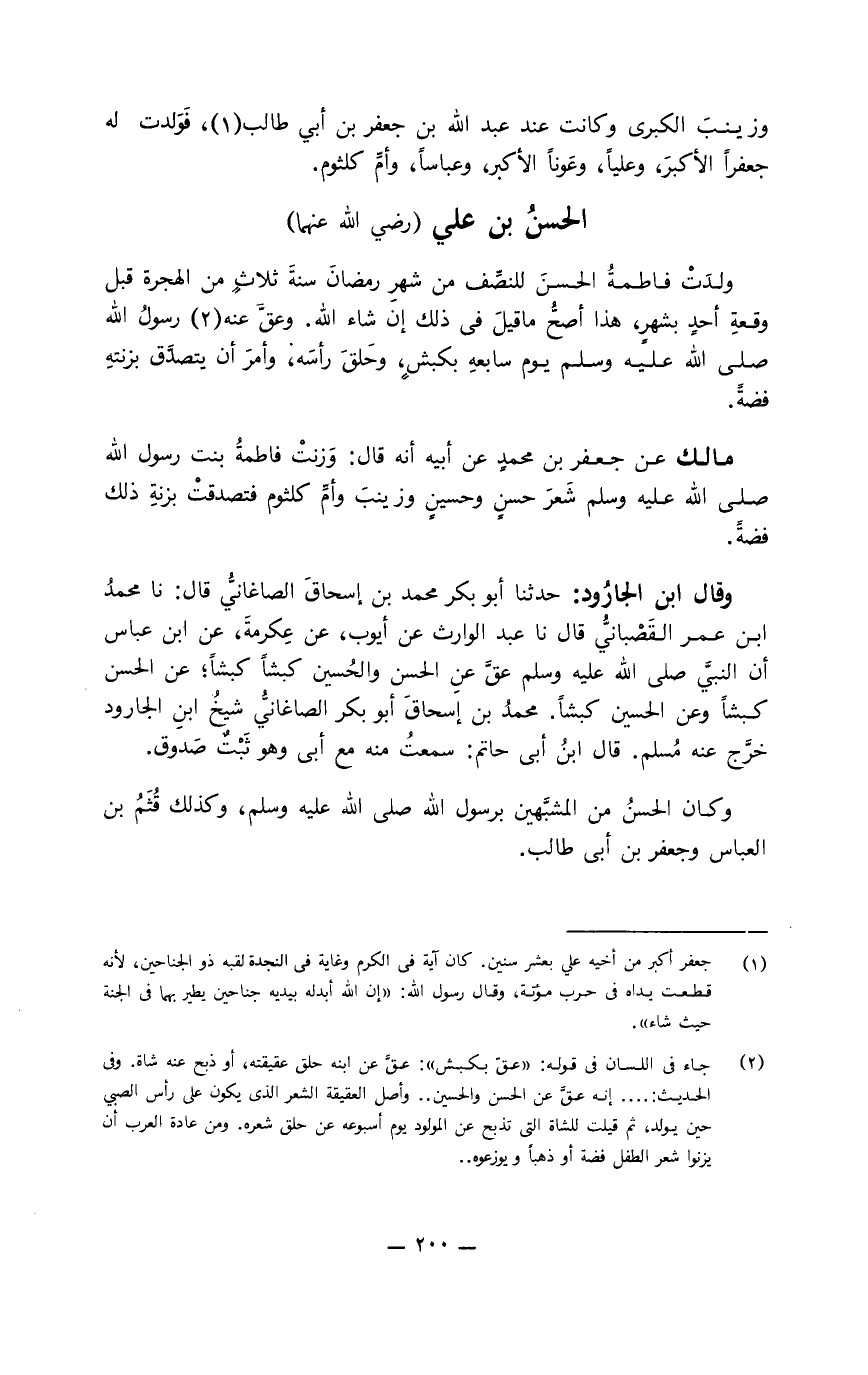 وزينبَ الكبرى وكانت عند عبد الله بن جعفر بن أبي طالب(١)، فَوَلدت له
جعفراً الأكبرَ، وعلياً، وعَوناً الأكبر، وعباساً، وأمِّ كلثوم.
الحسنُ بن علي (رضي الله عنهما)
ولدَتْ فاطمةُ الحسنَ للنصِّف من شهرِ رمضانَ سنةَ ثلاثٍ من الهجرة قبل
وقعةِ أحدٍ بشهرٍ، هذا أصحُّ ماقيلَ فى ذلك إن شاء الله. وعقَّ عنه(٢) رسولُ الله
صلى الله عليه وسلم يوم سابعهِ بكبشٍ، وحَلقَ رأسَه، وأمرَ أن يتصدَّق بزنتهِ
فضةً.
مالك عن جعفر بن محمدٍ عن أبيه أنه قال: وَزنتْ فاطمةُ بنت رسول الله
صلى الله عليه وسلم شَعرَ حسنٍ وحسينٍ وزينبَ وأمِّ كلثوم فتصدقتْ بزنةِ ذلك
فضةً.
وقال ابن الجارُود: حدثنا أبو بكر محمد بن إسحاقَ الصاغانيُّ قال: نا محمدُ
ابن عمر القَصْبانيُّ قال نا عبد الوارث عن أيوب، عن عِكرمةَ، عن ابن عباس
أن النبيَّ صلى الله عليه وسلم عقَّ عنِ الحسن والحُسين كبشاً كبشاً؛ عن الحسن
كبشاً وعن الحسين كبشاً. محمدُ بن إسحاقَ أبو بكر الصاغانيُّ شيخُ ابنِ الجارود
خرَّج عنه مُسلم. قال ابنُ أبى حاتم: سمعتُ منه مع أبى وهو ثَبْتٌ صَدوق.
وكان الحسنُ من المشبَّهين برسول الله صلى الله عليه وسلم، وكذلك قُثَمُ بن
العباس وجعفر بن أبى طالب.
(١) جعفر أكبر من أخيه علي بعشر سنين. كان آية فى الكرم وغاية فى النجدة لقبه ذو الجناحين، لأنه
قطعت يداه فى حرب مؤتة، وقال رسول الله: «إن الله أبدله بيديه جناحين يطير بهما فى الجنة
حيث شاء».
(٢) جاء فى اللسان فى قوله: «عقّ بكبش»: عقَّ عن ابنه حلق عقيقته، أو ذبح عنه شاة. وفى
الحديث:.... إنه عقَّ عن الحسن والحسين.. وأصل العقيقة الشعر الذى يكون على رأس الصبي
حين يولد، ثم قيلت للشاة التى تذبح عن المولود يوم أسبوعه عن حلق شعره. ومن عادة العرب أن
يزنوا شعر الطفل فضة أو ذهباً ويوزعوه..
— ٢٠٠ —